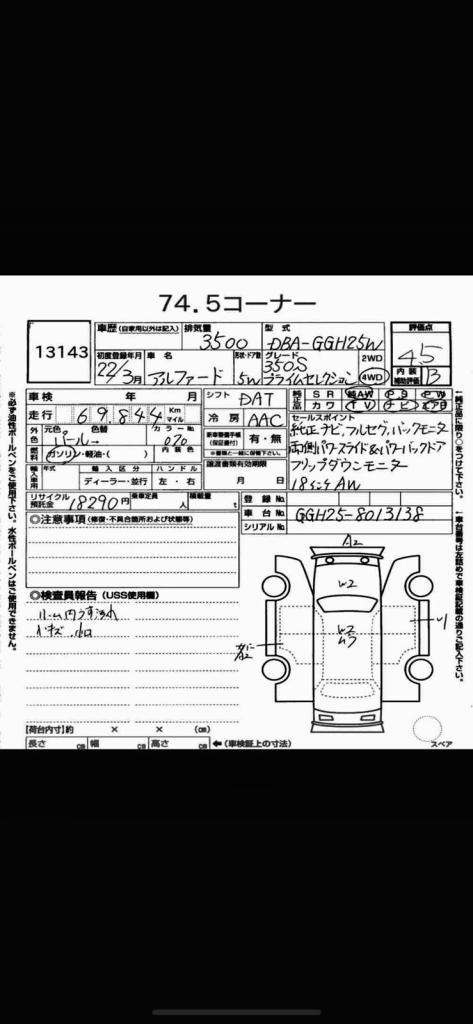 74.5コーナー
13143
車歴 (自家用以外は記入) 排気量 3500 型式 DBA-GGH25W 評価点 4.5
初度登録年月 22/3月 車名 アルファード 形状・ドア数 5W グレード 350S プライムセレクション 2WD 4WD 内装補助評価 B
車検 年 月 シフト DAT 純正品 SR 純AW PS PW カワ TV ナビ エアB
走行 69844 Km マイル 冷房 AAC セールスポイント
外色 元色 パール 色替 → カラーNo 070 新車整備手帳(保証書付) 有・無 純正ナビ、フルセグ、バックモニタ
燃料 ガソリン・軽油・( ) 内装色 ※書類と一緒に保管下さい。 両側パワースライド&パワーバックドア
輸入車用 年式 輸入区分 ディーラー・並行 ハンドル 左・右 譲渡書類有効期限 月 日 フリップダウンモニター
18インチAW
リサイクル預託金 18290円 乗車定員 人 積載量 t 登録No.
◎注意事項 (修復・不具合箇所および状態等) 車台No. GGH25-8013138
シリアルNo.
A2
W2
◎検査員報告 (USS使用欄)
ルーム内うす汚れ
小キズ 小凹
W2
リ
【荷台内寸】約 × × (cm)
長さ cm 幅 cm 高さ cm ←(車検証上の寸法)
スペア
※必ず油性ボールペンをご使用下さい。水性ボールペンはご使用できません。
↑純正品に限り○をつけて下さい。
↓車台番号は左詰めで車検証記載の通りご記入下さい。